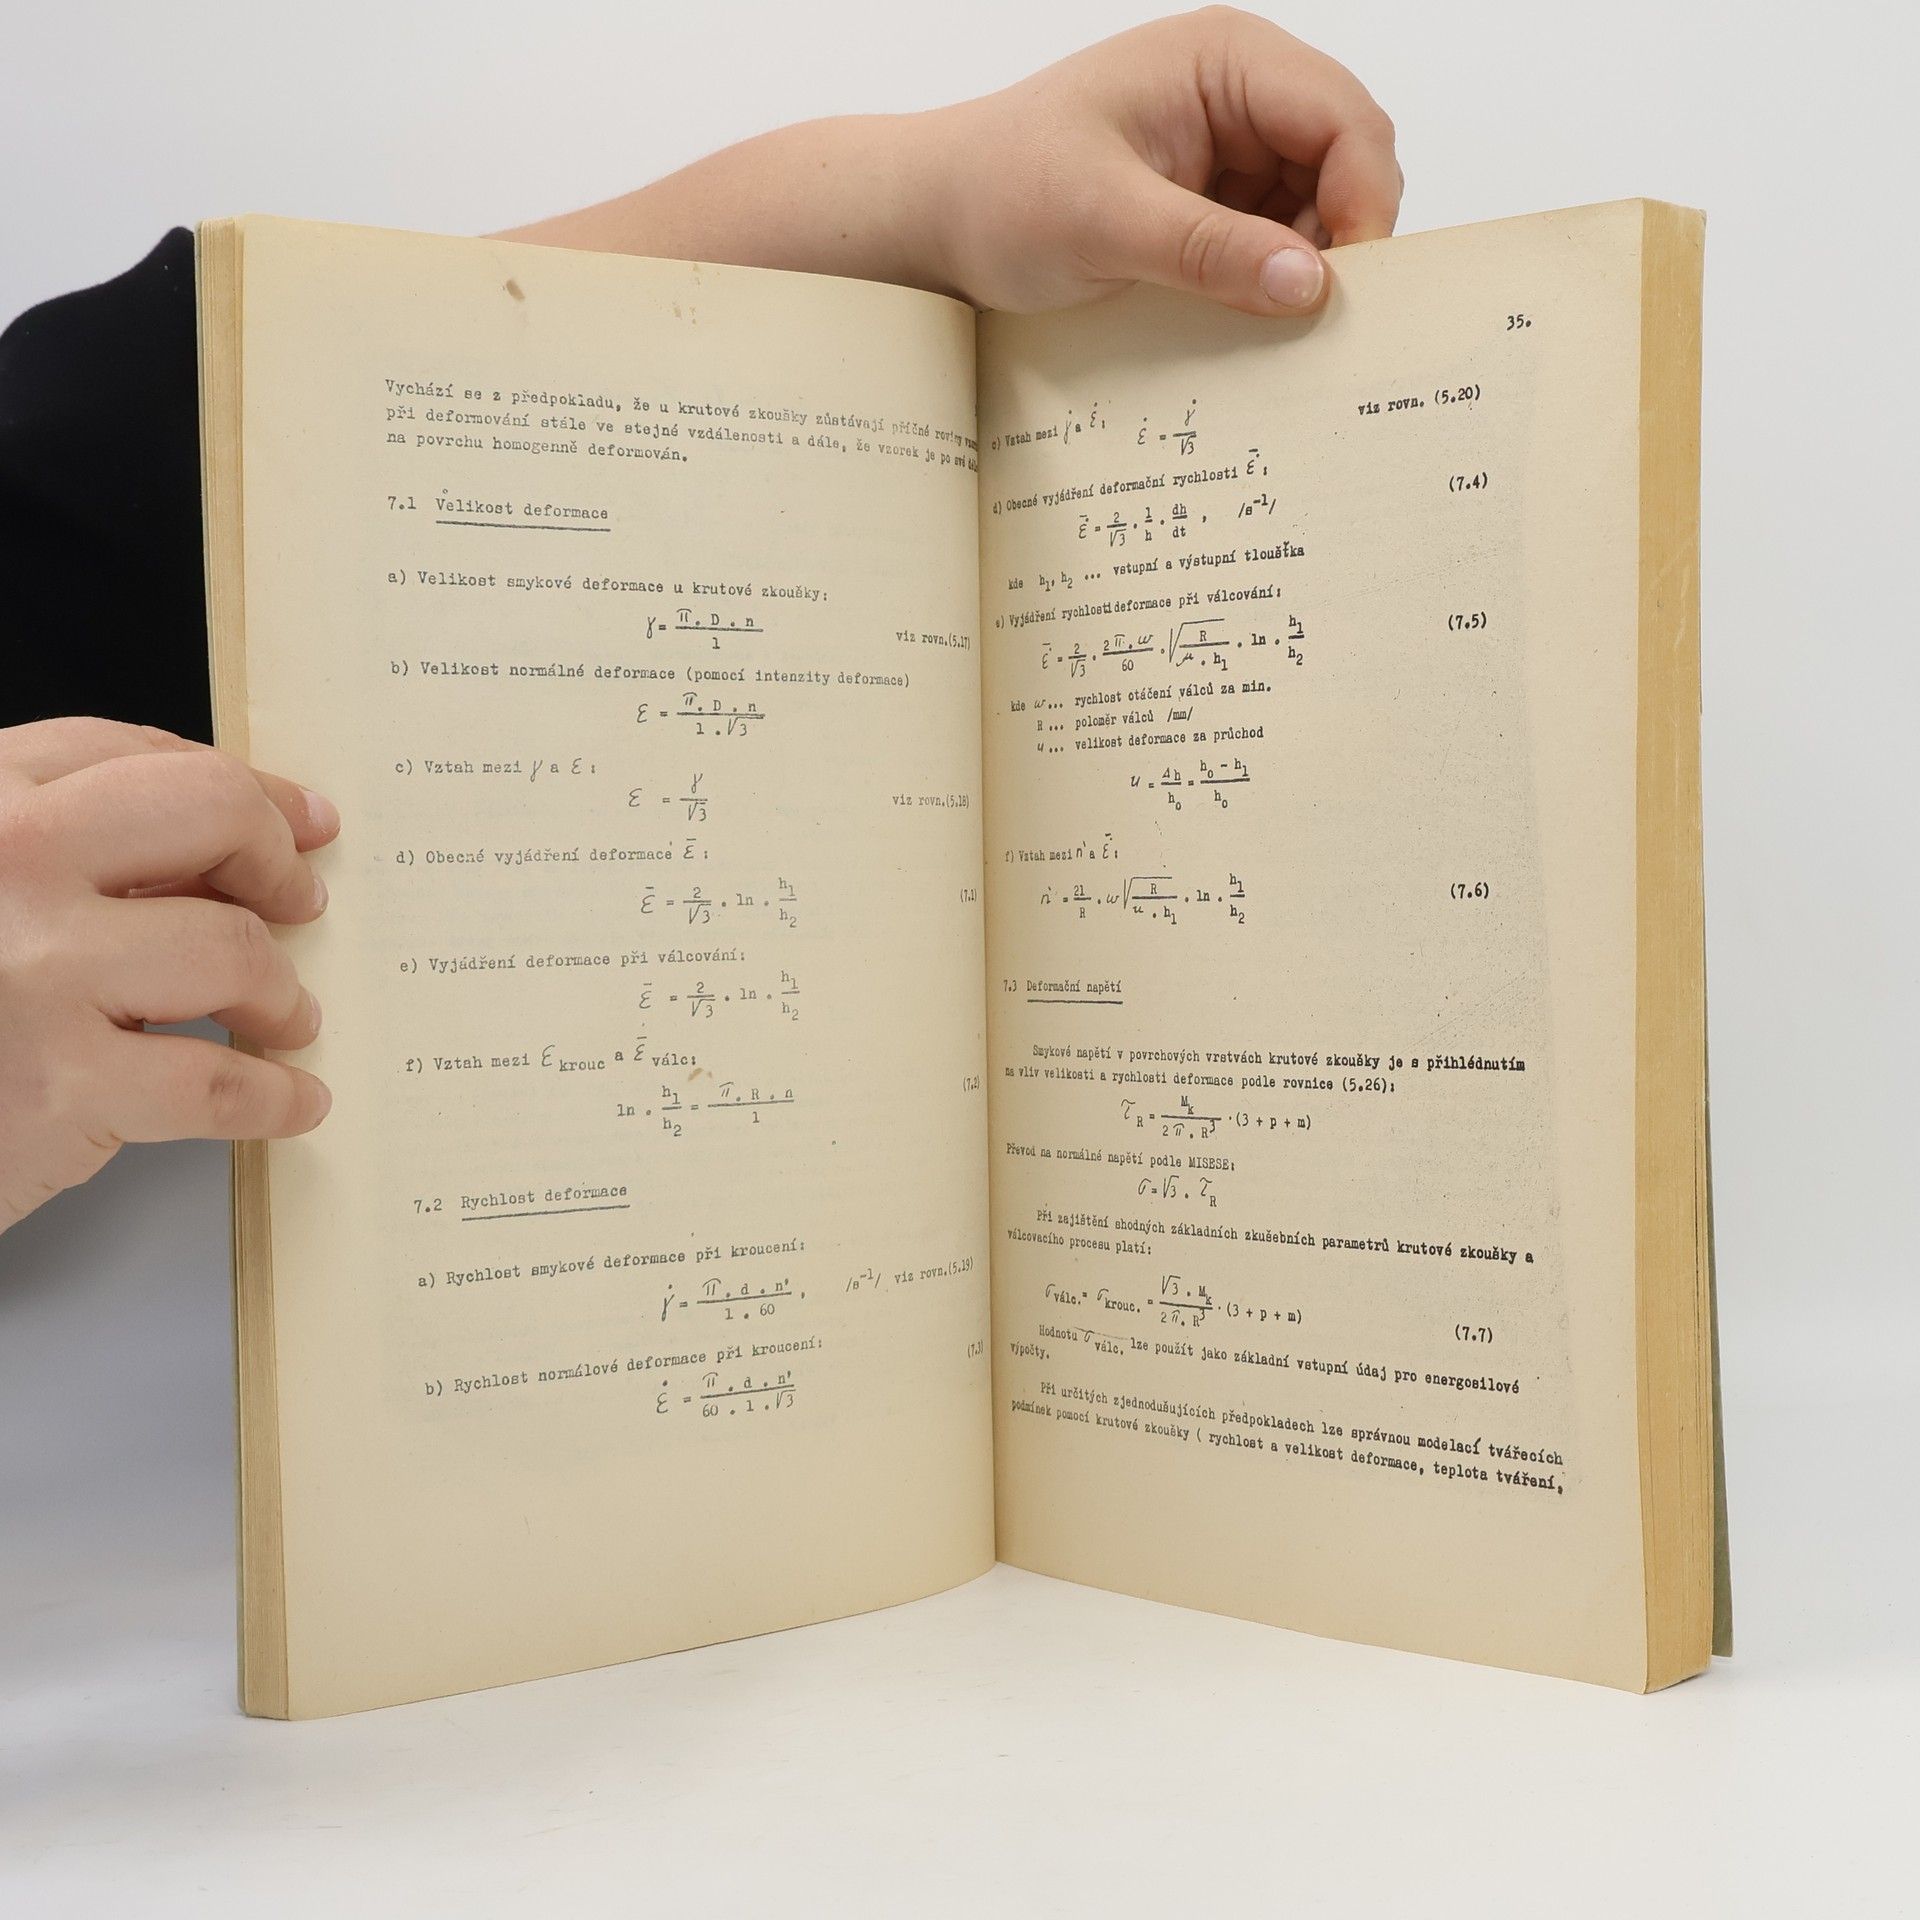 Vychází se z předpokladu, že u krutové zkoušky zůstávají příčné roviny
při deformování stále ve stejné vzdálenosti a dále, že vzorek je po své
na povrchu homogenně deformován.
7.1 Velikost deformace
a) Velikost smykové deformace u krutové zkoušky:
γ = π . D . n / l viz rovn.(5.17)
b) Velikost normálné deformace (pomocí intenzity deformace)
ε = π . D . n / l . √3
c) Vztah mezi γ a ε :
ε = γ / √3 viz rovn.(5.18)
d) Obecné vyjádření deformace ε̄ :
ε̄ = 2/√3 . ln . h₁/h₂ (7.1)
e) Vyjádření deformace při válcování:
ε̄ = 2/√3 . ln . h₁/h₂
f) Vztah mezi ε krouc a ε̄ válc:
ln . h₁/h₂ = π . R . n / l (7.2)
7.2 Rychlost deformace
a) Rychlost smykové deformace při kroucení:
γ̇ = π . d . n' / l . 60 , /s⁻¹/ viz rovn.(5.19)
b) Rychlost normálové deformace při kroucení:
ε̇ = π . d . n' / 60 . l . √3 (7.3)
35.
c) Vztah mezi γ̇ a ε̇ : ε̇ = γ̇ / √3 viz rovn. (5.20)
d) Obecné vyjádření deformační rychlosti ε̄̇ :
ε̄̇ = 2/√3 . 1/h . dh/dt , /s⁻¹/ (7.4)
kde h₁, h₂ ... vstupní a výstupní tloušťka
e) Vyjádření rychlosti deformace při válcování:
ε̄̇ = 2/√3 . 2π . w / 60 . √(R / u . h₁) . ln . h₁/h₂ (7.5)
kde w... rychlost otáčení válců za min.
R ... poloměr válců /mm/
u ... velikost deformace za průchod
u = Δh/h₀ = h₀ - h₁ / h₀
f) Vztah mezi n' a ε̄̇ :
n' = 2l/R . w √(R / u . h₁) . ln . h₁/h₂ (7.6)
7.3 Deformační napětí
Smykové napětí v povrchových vrstvách krutové zkoušky je s přihlédnutím
na vliv velikosti a rychlosti deformace podle rovnice (5.26):
τ_R = M_k / 2π . R³ . (3 + p + m)
Převod na normálné napětí podle MISESE:
σ = √3 . τ_R
Při zajištění shodných základních zkušebních parametrů krutové zkoušky a
válcovacího procesu platí:
σ válc. = σ krouc. = √3 . M_k / 2π . R³ . (3 + p + m) (7.7)
Hodnotu σ válc. lze použít jako základní vstupní údaj pro energosilové
výpočty.
Při určitých zjednodušujících předpokladech lze správnou modelací tvářecích
podmínek pomocí krutové zkoušky ( rychlost a velikost deformace, teplota tváření,